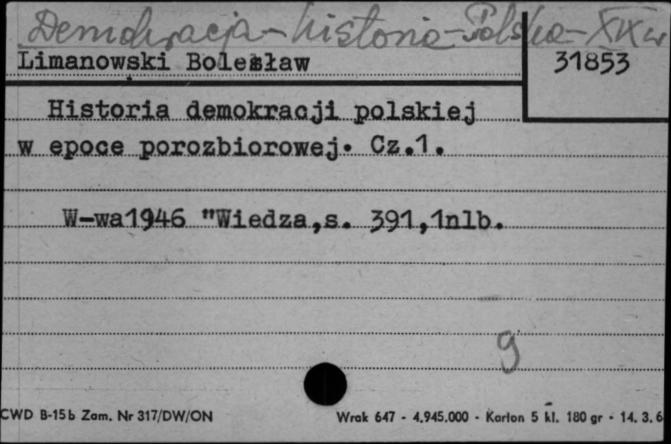 Demokracja - historia - Polska - XIX w
Limanowski Bolesław
31853
Historia demokracji polskiej
w epoce porozbiorowej. Cz.1.
W-wa1946 "Wiedza,s. 391,1nlb.
g
CWD B-15b Zam. Nr 317/DW/ON
Wrak 647 - 4.945.000 - Karton 5 kl. 180 gr - 14. 3. 6